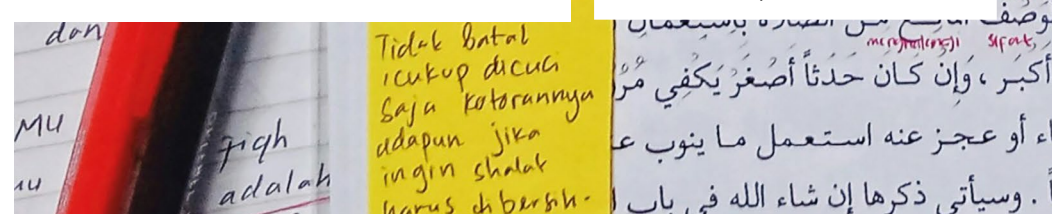 dan
MU
fiqh
adalah
Tidak batal
cukup dicuci
saja kotorannya
adapun jika
ingin shalat
harus dibersih-
sifat
أكبر ، وَإِنْ كَانَ حَدَثاً أَصْغَرُ يَكْفِي
اء أو عجز عنه استعمل ما ينوب ع
. وسيأتي ذكرها إن شاء الله في باب